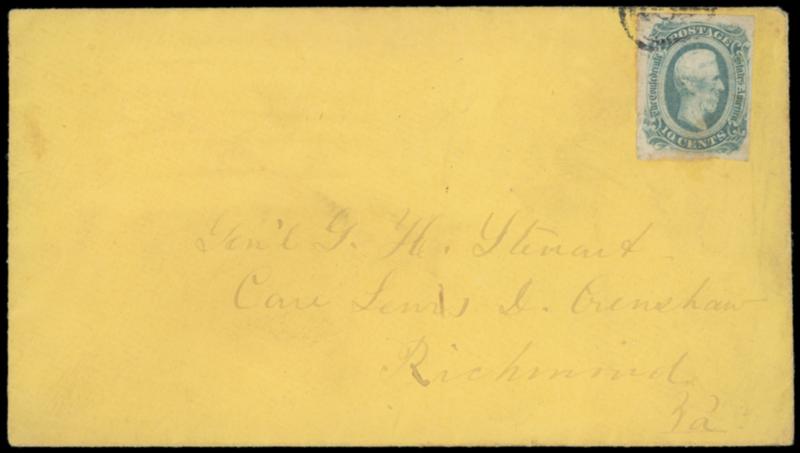 POSTAGE
The Confederate States America
10 CENTS
Gen'l G. H. Stewart
Care Lewis D. Crenshaw
Richmond
Va